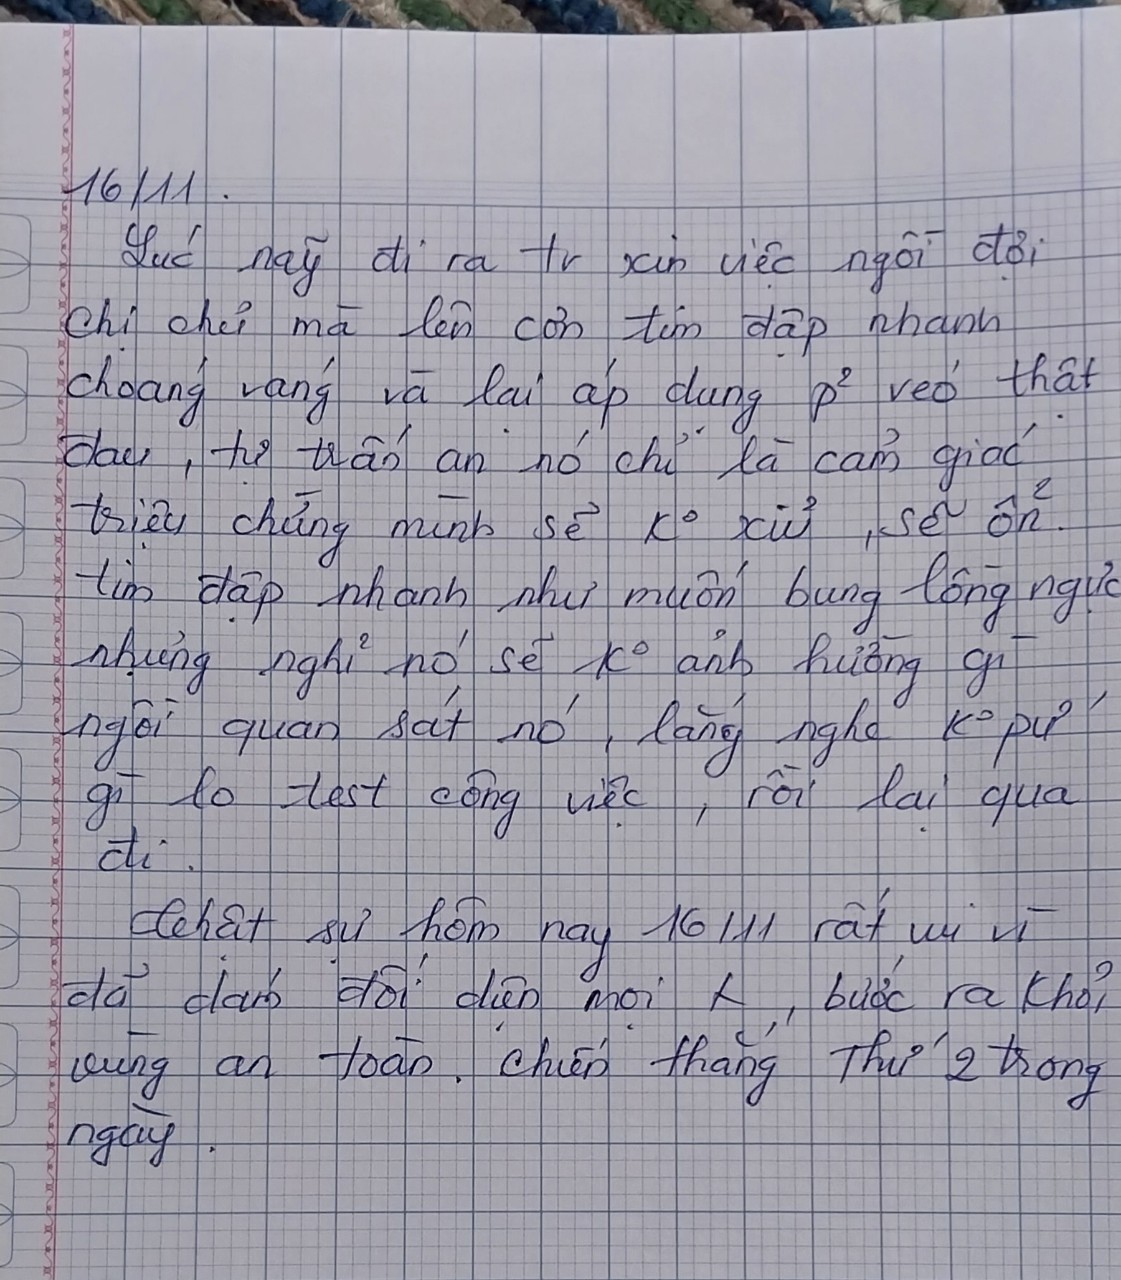 16/11.
Lúc nãy đi ra tr xin việc ngồi đợi
chị chủ mà lên cơn tim đập nhanh
choáng váng và lại áp dụng p² véo thật
đau, tự trấn an nó chỉ là cảm giác
triệu chứng mình sẽ k° xỉu, sẽ ổn.
tim đập nhanh như muốn bung lồng ngực
nhưng nghĩ nó sẽ k° ảnh hưởng gì
ngồi quan sát nó, lắng nghe k° pứ
gì lo test công việc, rồi lại qua
đi.
Thật sự hôm nay 16/11 rất vui vì
đã dám đối diện mọi t, bước ra khỏi
vùng an toàn. chiến thắng Thứ 2 trong
ngày.